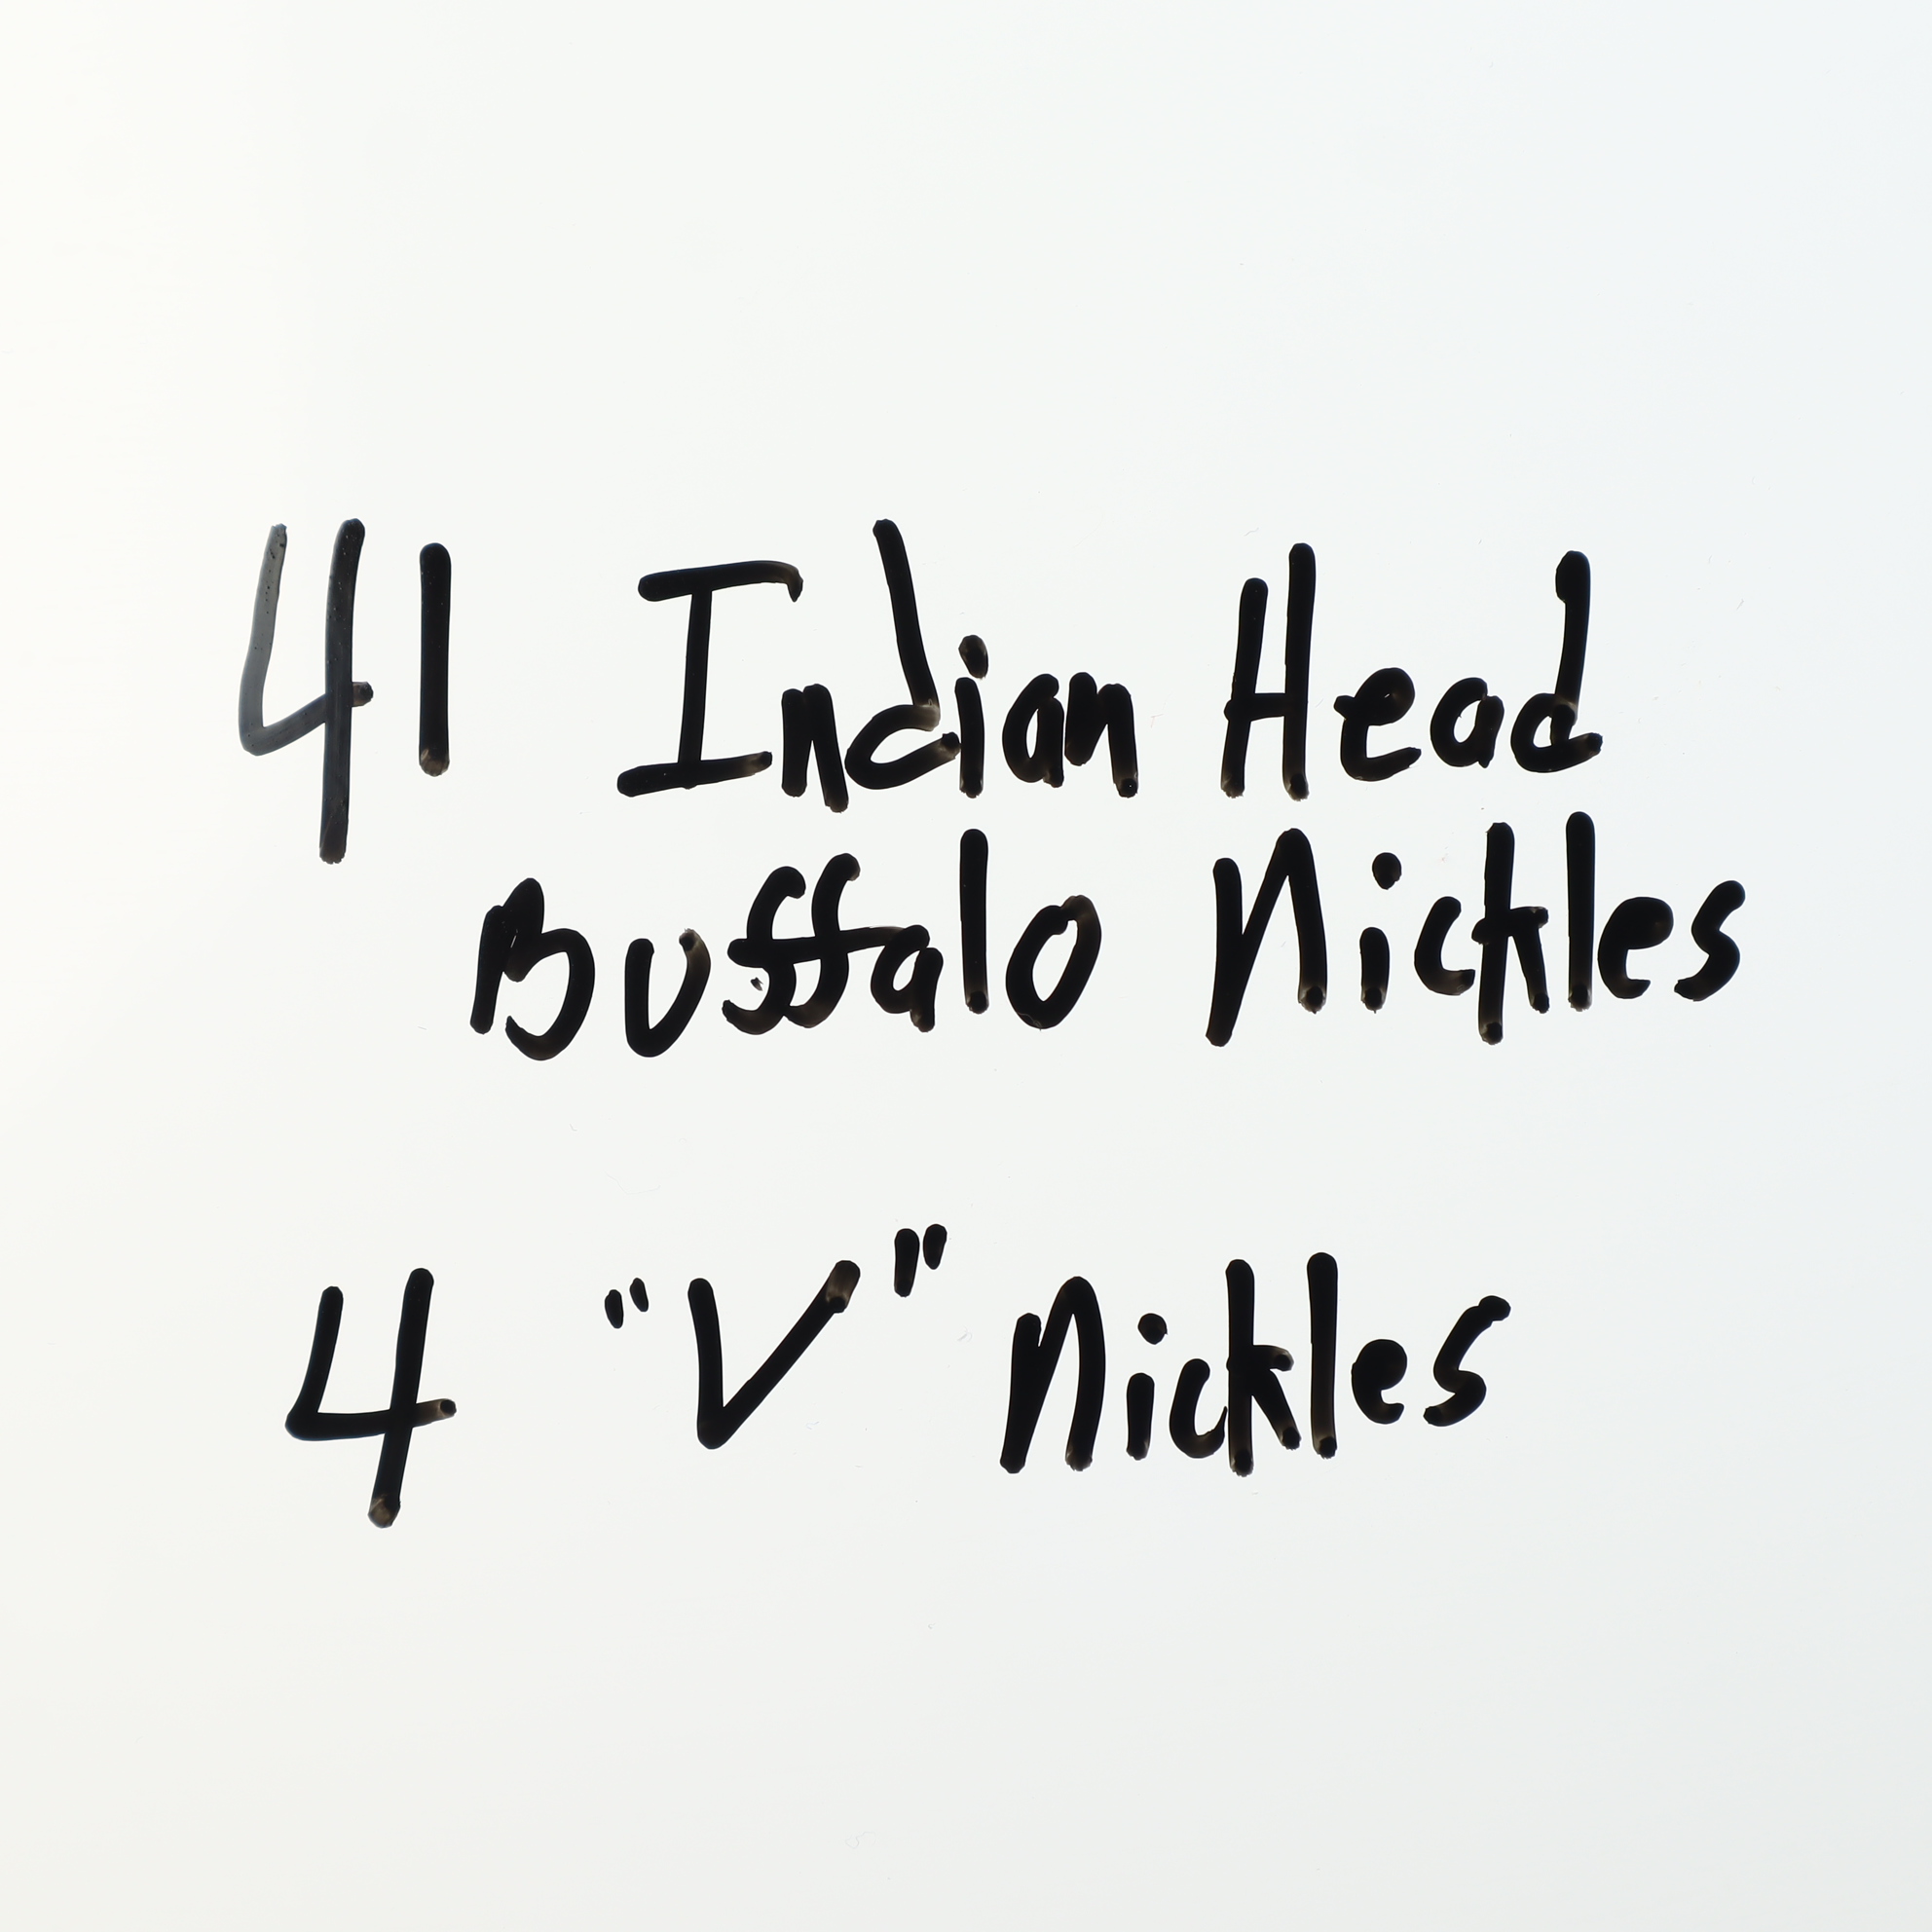 41 Indian Head
Buffalo Nickles
4 "V" Nickles